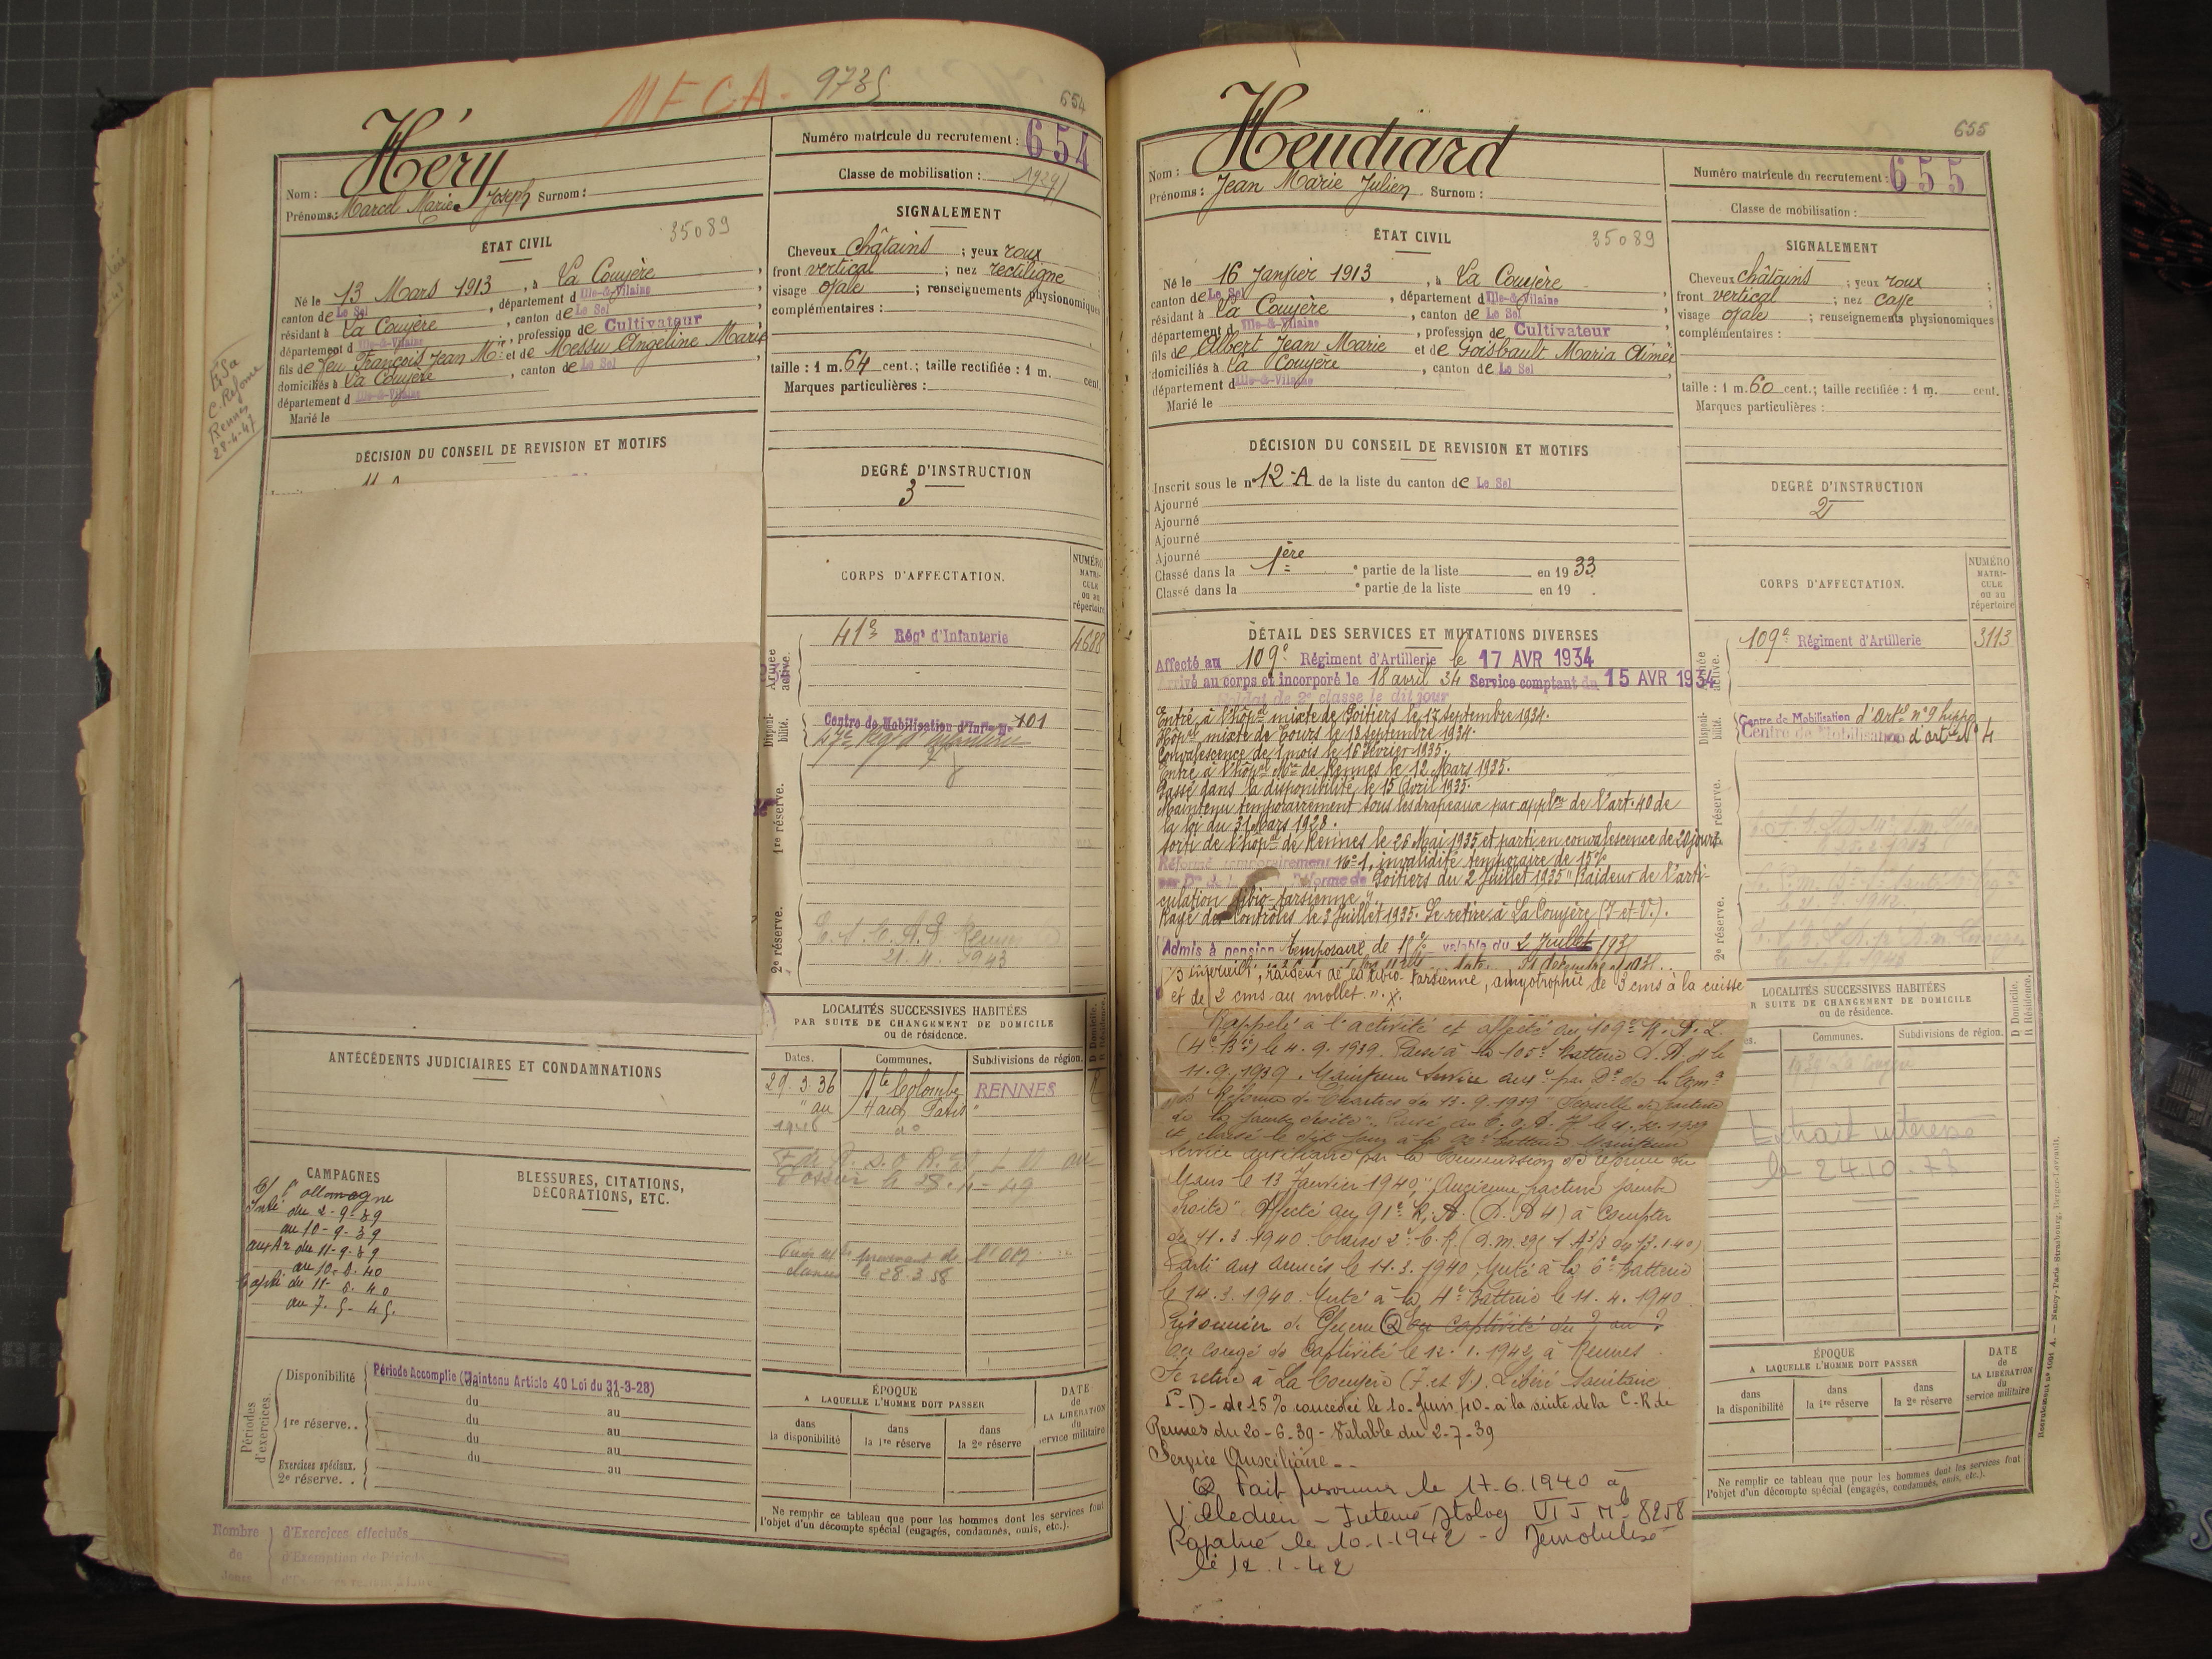 MFCA - 9735
654
Héry
Nom :
Prénoms : Marcel Marie Joseph Surnom :
Numéro matricule du recrutement : 654
Classe de mobilisation : 1929
ÉTAT CIVIL
35089
Né le 13 Mars 1913, à La Couyère,
canton de Le Sel, département d Ille-&-Vilaine,
résidant à La Couyère, canton de Le Sel,
département d Ille-&-Vilaine, profession de Cultivateur,
fils de feu François Jean Mie et de Messu Angéline Marie
domiciliés à La Couyère, canton de Le Sel,
département d Ille-&-Vilaine
Marié le
SIGNALEMENT
Cheveux châtains ; yeux roux
front vertical ; nez rectiligne
visage ovale ; renseignements physionomiques
complémentaires :
taille : 1 m. 64 cent. ; taille rectifiée : 1 m. cent.
Marques particulières :
E, Sa
C. Réforme
Rennes
28-4-47
DÉCISION DU CONSEIL DE REVISION ET MOTIFS
DEGRÉ D'INSTRUCTION
3
CORPS D'AFFECTATION.
NUMÉRO MATRICULE ou au répertoire
Armée active.
41e Régt d'Infanterie 4688
Disponibilité.
Centre de Mobilisation d'Infie No 101
1re réserve.
2e réserve.
21. 4. 1943
ANTÉCÉDENTS JUDICIAIRES ET CONDAMNATIONS
LOCALITÉS SUCCESSIVES HABITÉES
PAR SUITE DE CHANGEMENT DE DOMICILE
ou de résidence.
D Domicile. R Résidence.
Dates. Communes. Subdivisions de région.
29.3.36 Ste Colombe RENNES R
" au Haut Patis "
le 28.3.58
CAMPAGNES
C/ l'allemagne
Intr du 2-9-39
au 10-9-39
aux Ar du 11-9-39
au 10-6-40
Captté du 11-6-40
au 7-5-45.
BLESSURES, CITATIONS,
DÉCORATIONS, ETC.
Périodes d'exercices.
Disponibilité Période Accomplie (Maintenu Article 40 Loi du 31-3-28)
du au
1re réserve.. du au
du au
Exercices spéciaux. du au
2e réserve. .
ÉPOQUE
A LAQUELLE L'HOMME DOIT PASSER
dans la disponibilité
dans la 1re réserve
dans la 2e réserve
DATE de LA LIBÉRATION du service militaire
Ne remplir ce tableau que pour les hommes dont les services font
l'objet d'un décompte spécial (engagés, condamnés, omis, etc.).
Nombre de Jours
d'Exercices effectués
d'Exemption de Période
655
Heudiard
Nom :
Prénoms : Jean Marie Julien Surnom :
Numéro matricule du recrutement : 655
Classe de mobilisation :
ÉTAT CIVIL
35089
Né le 16 Janvier 1913, à La Couyère
canton de Le Sel, département d Ille-&-Vilaine,
résidant à La Couyère, canton de Le Sel,
département d Ille-&-Vilaine, profession de Cultivateur
fils de Albert Jean Marie et de Goisbault Maria Aimée
domiciliés à La Couyère, canton de Le Sel,
département d Ille-&-Vilaine
Marié le
SIGNALEMENT
Cheveux châtains ; yeux roux ;
front vertical ; nez casse ;
visage ovale ; renseignements physionomiques
complémentaires :
taille : 1 m. 60 cent. ; taille rectifiée : 1 m. cent.
Marques particulières :
DÉCISION DU CONSEIL DE REVISION ET MOTIFS
Inscrit sous le no 12-A de la liste du canton de Le Sel
Ajourné
Ajourné
Ajourné
Ajourné
Classé dans la 1ère e partie de la liste en 1933
Classé dans la e partie de la liste en 19 .
DEGRÉ D'INSTRUCTION
2
DÉTAIL DES SERVICES ET MUTATIONS DIVERSES
Affecté au 109e Régiment d'Artillerie le 17 AVR 1934
Arrivé au corps et incorporé le 18 avril 34 Service comptant du 15 AVR 1934
Soldat de 2e classe le dit jour
Entré à l'hôpal mixte de Poitiers le 17 septembre 1934.
Hôpal mixte de Tours le 18 septembre 1934.
Convalescence de 1 mois le 16 Février 1935.
Entré à l'hôpal Mre de Rennes le 12 Mars 1935.
Passé dans la disponibilité le 15 Avril 1935.
Maintenu temporairement sous les drapeaux par applon de l'art. 40 de
la loi du 31 Mars 1928.
Sorti de l'hôpal de Rennes le 26 Mai 1935 et parti en convalescence de 20 jours.
Réformé temporairement no 1, invalidité temporaire de 15%
Poitiers du 2 Juillet 1935 "Raideur de l'arti-
culation tibio-tarsienne".
Rayé des contrôles le 3 Juillet 1935. Se retire à La Couyère (I-et-V.).
Admis à pension temporaire de 15% valable du 2 Juillet 1935
raideur de la tibio-tarsienne, amyotrophie de 3 cms à la cuisse
et de 2 cms au mollet.". X.
Rappelé à l'activité et affecté au 109e R.A.L.
(4e Bie) le 4.9.1939. Passé à la 105e Batterie D.A.4 le
11.9.1939. Maintenu Service auxre par Don de la Comon
de Réforme de Chartres du 13.9.1939 "Séquelle de fracture
de la jambe droite".
Service Auxiliaire par la Commission de réforme du
Mans le 13 Janvier 1940, "Ancienne fracture jambe
droite". Affecté au 91e R.A. (D.A 4) à compter
du 11.3.1940.
Parti aux armées le 11.3.1940. Muté à la 6e Batterie
le 14.3.1940. Muté à la 4e Batterie le 11.4.1940.
Prisonnier de Guerre En captivité du ? au ?
En congé de Captivité le 12.1.1942 à Rennes.
Se retire à La Couyère (I. et V.). Libéré Sanitaire.
P-D- de 15% concédée le 10-Juin 40- à la suite de la C-R de
Rennes du 20-6-39- Valable du 2-7-39
Service Auxiliaire--
Fait prisonnier le 17-6.1940 à
Villedieu - Interné Stalag VI J Mle 8258
Rapatrié le 10-1-1942 - Démobilisé
le 12.1-42
CORPS D'AFFECTATION.
NUMÉRO MATRICULE ou au répertoire
Armée active.
109e Régiment d'Artillerie 3113
Disponibilité.
Centre de Mobilisation d'Artie no 9 hippo
Centre de Mobilisation d'artie No 4
1re réserve.
2e réserve.
LOCALITÉS SUCCESSIVES HABITÉES
PAR SUITE DE CHANGEMENT DE DOMICILE
ou de résidence.
D Domicile. R Résidence.
Communes. Subdivisions de région.
Extrait intéressé
le 24.10-73
ÉPOQUE
A LAQUELLE L'HOMME DOIT PASSER
dans la disponibilité
dans la 1re réserve
dans la 2e réserve
DATE de LA LIBÉRATION du service militaire
Ne remplir ce tableau que pour les hommes dont les services font
l'objet d'un décompte spécial (engagés, condamnés, omis, etc.).
Recrutement no 1001 A. — Nancy-Paris-Strasbourg, Berger-Levrault.